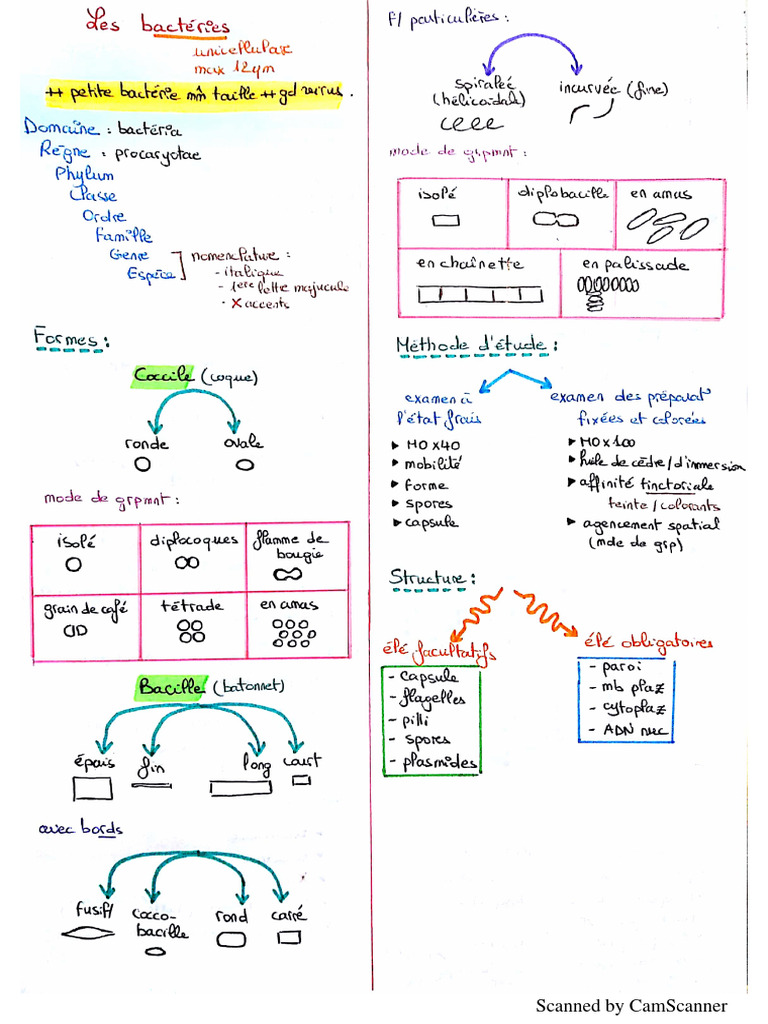 Les bactéries
unicellulaire
max 12ym
++ petite bactérie mm̂ taille ++ gd virus.
Domaine : bactéria
Règne : procaryotae
Phylum
Classe
Ordre
Famille
Genre
Espèce
nomenclature :
- italique
- 1ère lettre majuscule
- X accents
Formes :
Coccile (coque)
ronde
ovale
mode de grpmnt :
isolé
diplocoques
flamme de bougie
grain de café
tétrade
en amas
Bacille (batonnet)
épais
fin
long
court
avec bords
fusif/
cocco-
bacille
rond
carré
F/ particulières :
spiralée
(hélicoïdale)
incurvée (fine)
mode de grpmnt :
isolé
diplobacille
en amas
en chaînette
en palissade
Méthode d'étude :
examen à
l'état frais
▸ MO x40
▸ mobilité
▸ forme
▸ spores
▸ capsule
examen des préparat°
fixées et colorées
▸ MO x100
▸ huile de cèdre / d'immersion
▸ affinité tinctoriale
teinte / colorants
▸ agencement spatial
(mde de grp)
Structure :
élé facultatifs
- capsule
- flagelles
- pilli
- spores
- plasmides
élé obligatoires
- paroi
- mb plaz
- cytoplaz
- ADN nuc
Scanned by CamScanner